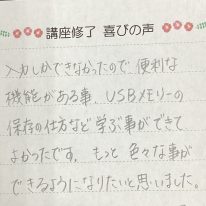 講座修了 喜びの声
入力しかできなかったので、便利な
機能がある事、USBメモリーの
保存の仕方など学ぶ事ができて
よかったです。もっと色々な事が
できるようになりたいと思いました。